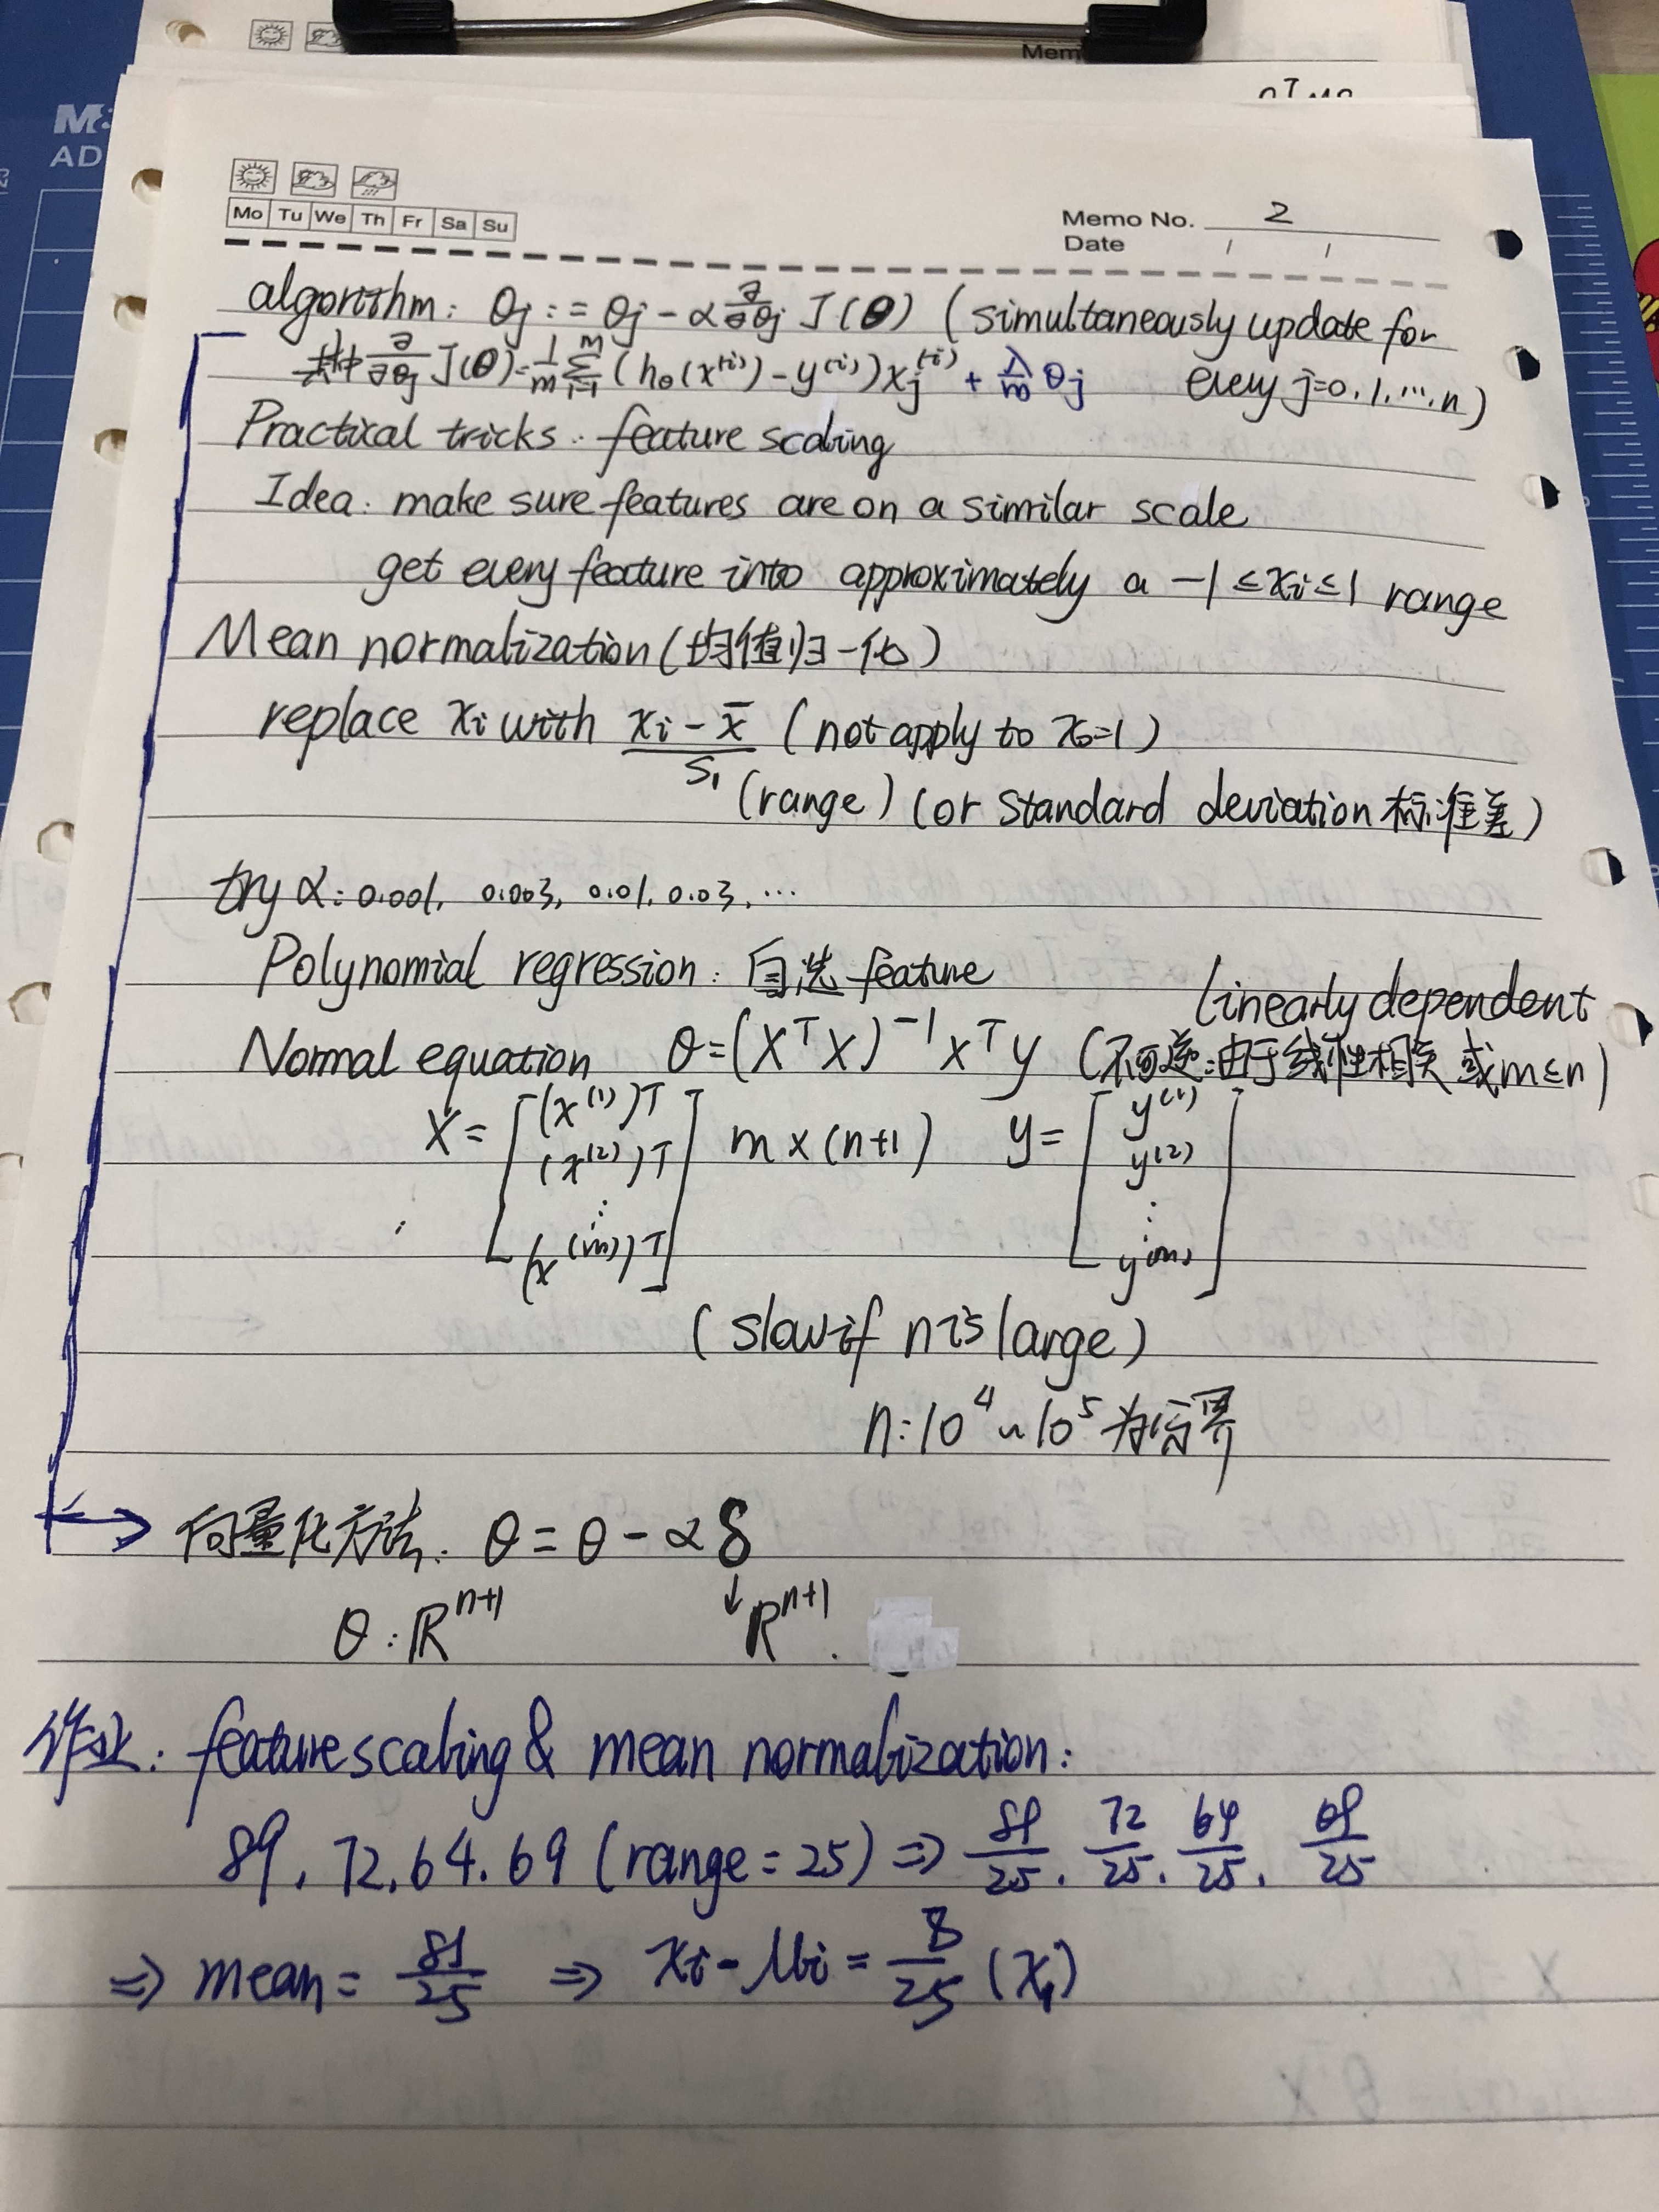 Mem
M&
AD
Mo Tu We Th Fr Sa Su
Memo No. 2
Date / /
algorithm: θj := θj - α ∂/∂θj J(θ) (simultaneously update for
其中 ∂/∂θj J(θ) = 1/m Σ_{i=1}^{m} (hθ(x^(i)) - y^(i)) xj^(i) + λ/m θj every j=0,1,...,n)
Practical tricks: feature scaling
Idea: make sure features are on a similar scale
get every feature into approximately a -1 ≤ xi ≤ 1 range
Mean normalization (均值归一化)
replace xi with (xi - x̄)/S₁ (not apply to x₀=1)
(range) (or standard deviation 标准差)
try α: 0.001, 0.003, 0.01, 0.03, ...
Polynomial regression: 自选 feature
linearly dependent
Normal equation θ=(XᵀX)⁻¹xᵀy (不可逆:由于线性相关 或m≤n)
X = [(x^(1))T (x^(2))T ⋮ (x^(m))T] m×(n+1) y = [y^(1) y^(2) ⋮ y^(m)]
(slow if n is large)
n: 10⁴~10⁵为分界
向量化方法: θ = θ - αδ
θ: ℝ^{n+1} ↓ ℝ^{n+1}.
作业: feature scaling & mean normalization:
89, 72, 64, 69 (range = 25) ⇒ 89/25, 72/25, 64/25, 69/25
⇒ mean = 81/25 ⇒ xi - μi = 8/25 (x₁)